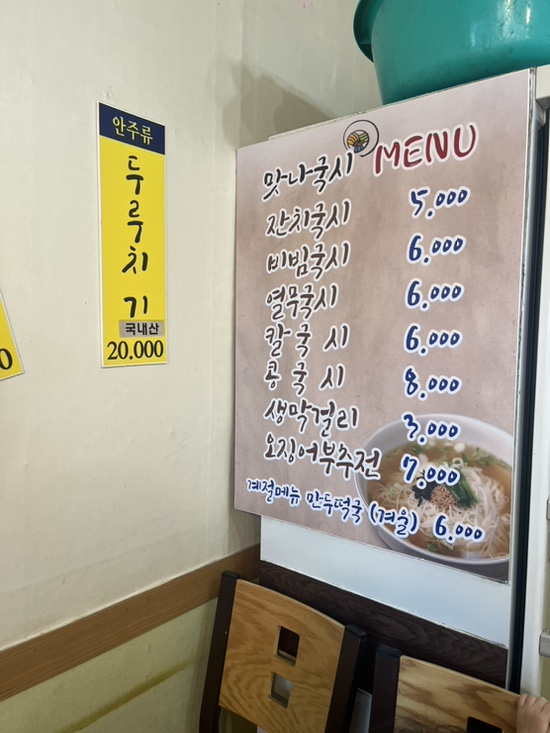 안주류
두루치기
국내산
20.000
0
맛나국시 MENU
잔치국시 5.000
비빔국시 6.000
열무국시 6.000
칼국시 6.000
콩국시 8.000
생막걸리 3.000
오징어부추전 7.000
계절메뉴 만두떡국 (겨울) 6.000